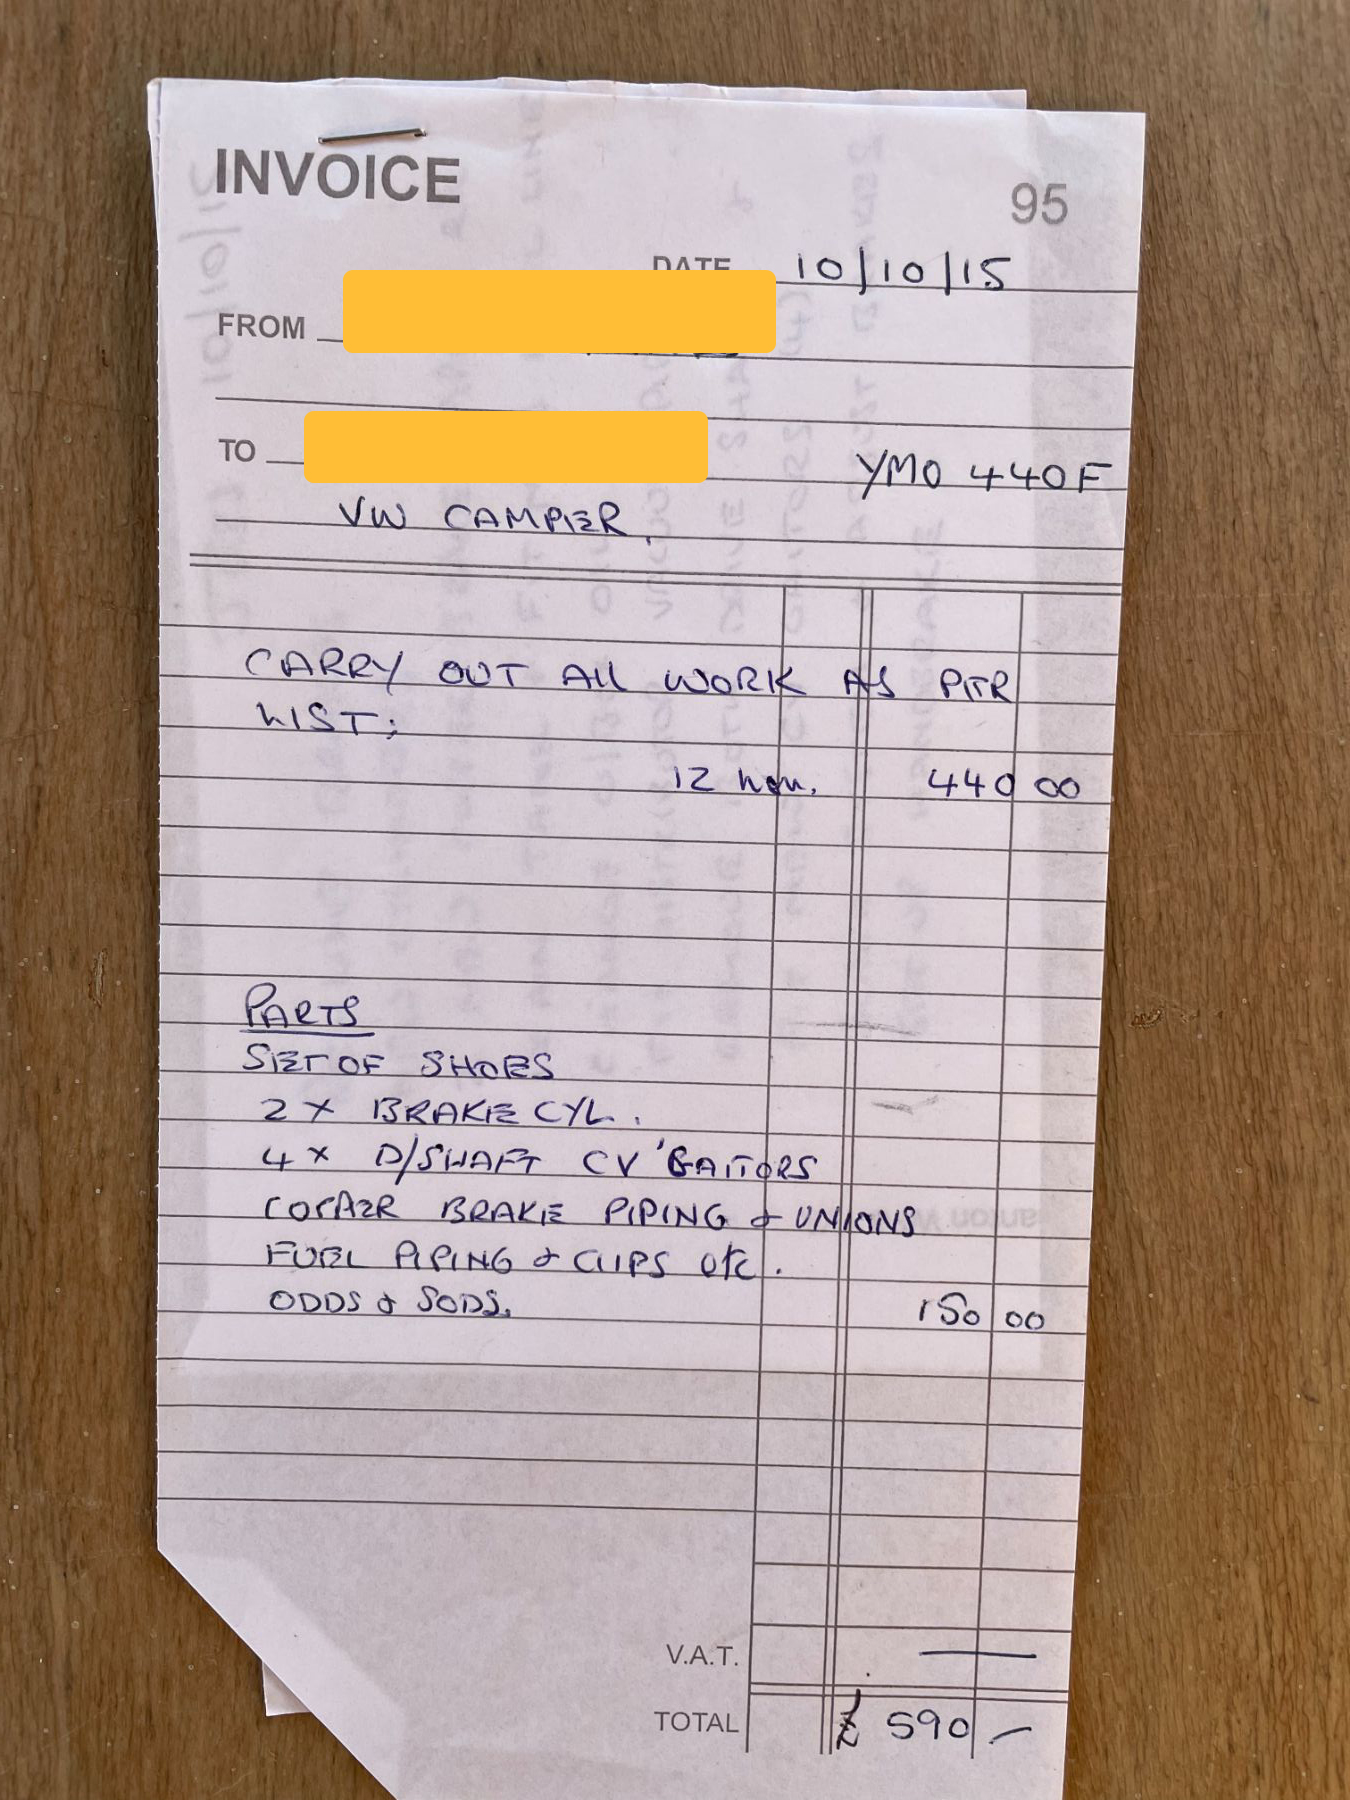 INVOICE
95
DATE 10/10/15
FROM
TO
YMO 440F
VW CAMPER.
CARRY OUT ALL WORK AS PER
LIST;
12 hou. 440 00
PARTS
SET OF SHOES
2 X BRAKE CYL.
4 X D/SHAFT CV GAITORS
COPPER BRAKE PIPING & UNIONS
FUEL PIPING & CLIPS etc.
ODDS & SODS. 150 00
V.A.T. —
TOTAL £ 590 —